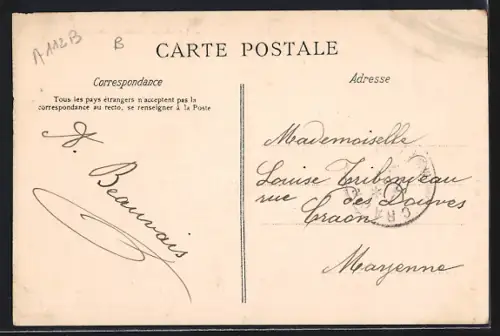 A112B
B
CARTE POSTALE
Correspondance
Tous les pays étrangers n'acceptent pas la
correspondance au recto, se renseigner à la Poste
A. Beauvais
Adresse
Mademoiselle
Louise Tribondeau
rue des Douves
Craon
Mayenne